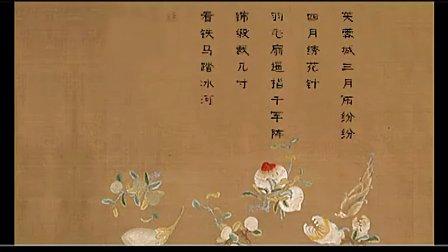 芙蓉城三月雨纷纷
四月绣花针
羽毛扇遥指千军阵
锦缎裁几寸
看铁马踏冰河